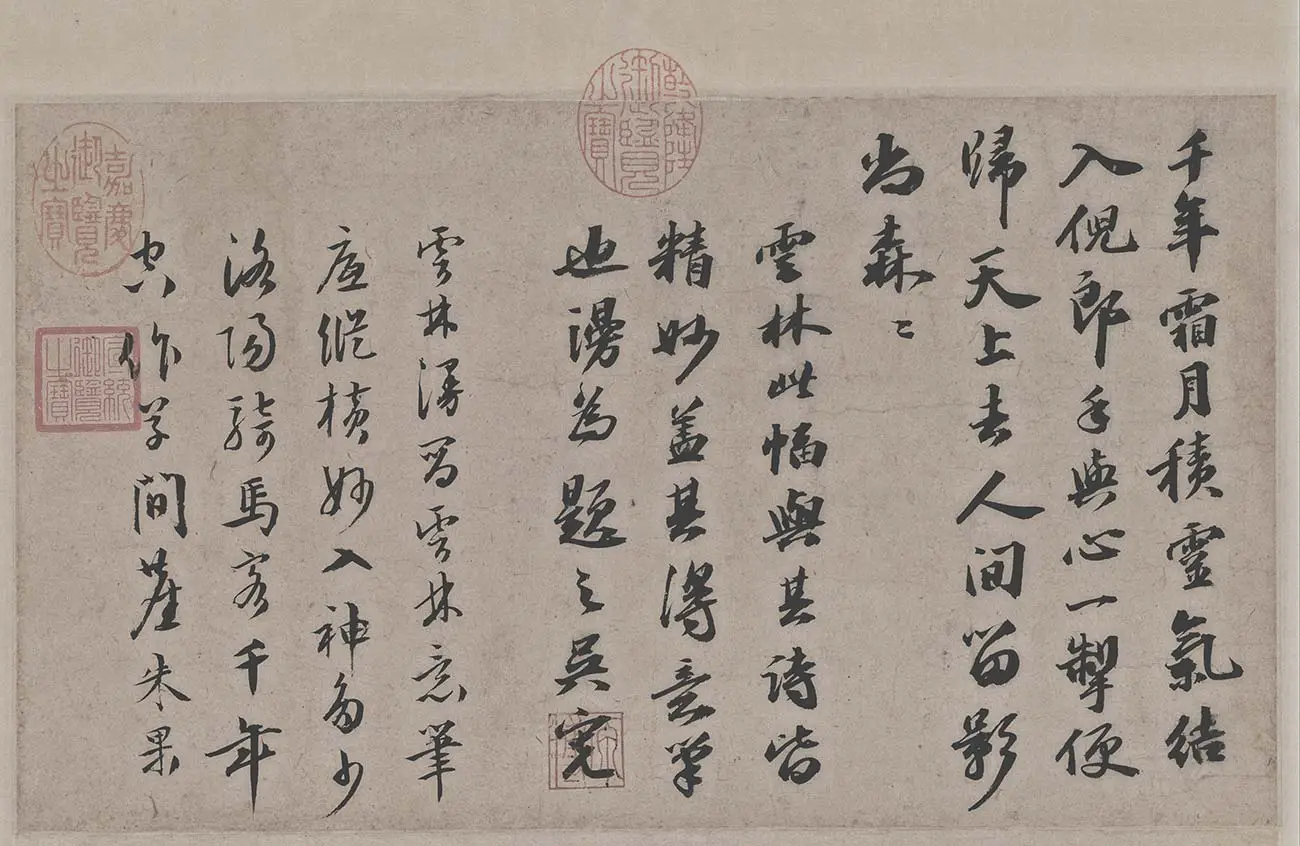 千年霜月積靈氣結
入倪郎手與心一掣便
歸天上去人間留影
尚森〻
雲林此幅與其詩皆
精妙蓋其得意筆
也漫為題之吳寬
雲林漫留雲林意筆
底縱橫妙入神多少
洛陽騎馬客千年
空作草間塵朱果
乾隆御覽之寶
嘉慶御覽之寶
宣統御覽之寶